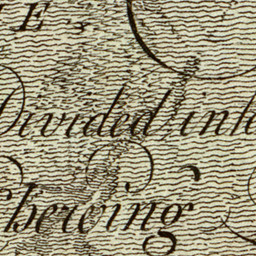 E,
Divided into
Shewing